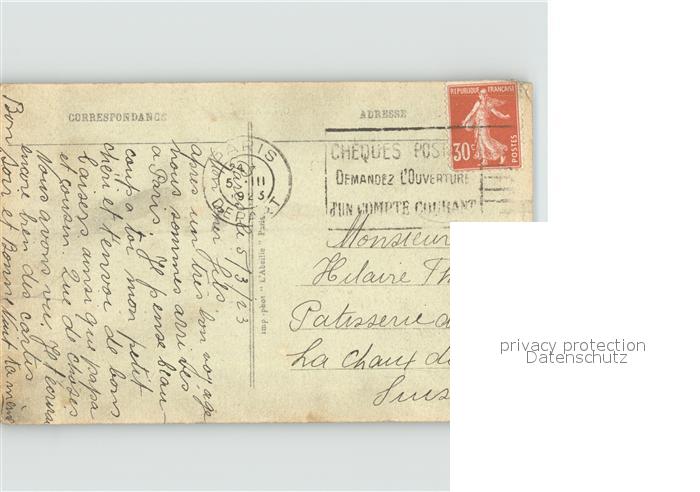 CORRESPONDANCE
Paris le 5/3/23
Mon cher fils
Après un très bon voyage
nous sommes arrivés
à Paris. Je pense beau-
coup à toi mon petit
chéri et t'envoi de bons
baisers ainsi que papa
et cousin. Que de choses
nous avons vu. Je t'écrirai
encore bien des cartes
Bonsoir et Bonne nuit ta mère
imp. phot "L'Abeille" Paris
ADRESSE
REPUBLIQUE FRANÇAISE
30c
POSTES
PARIS
DEPART
CHEQUES POST
DEMANDEZ L'OUVERTURE
D'UN COMPTE COURANT
Monsieur
Hilaire Th
Patisserie d
La Chaux de
Suis
privacy protection
Datenschutz